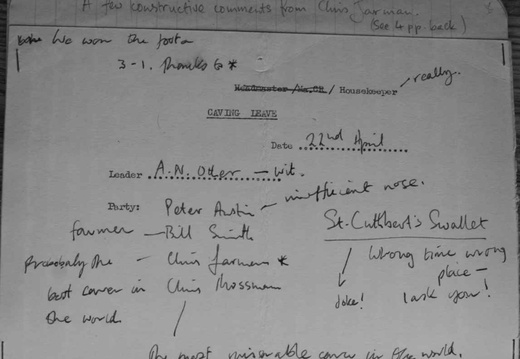 A few constructive comments from Chris Jarman.
(See 4 pp. back)
We won the foota
3-1. Thanks to *
Headmaster / / Housekeeper
really..
CAVING LEAVE
Date 22nd April
Leader A.N. Other — wit.
Party: Peter Austin — insufficient nose.
farmer — Bill Smith
St. Cuthbert's Swallet
probably the — Chris Jarman *
wrong time wrong
place —
best caver in Chris Mossman
Joke! I ask you!
the world
The most miserable caver in the world.